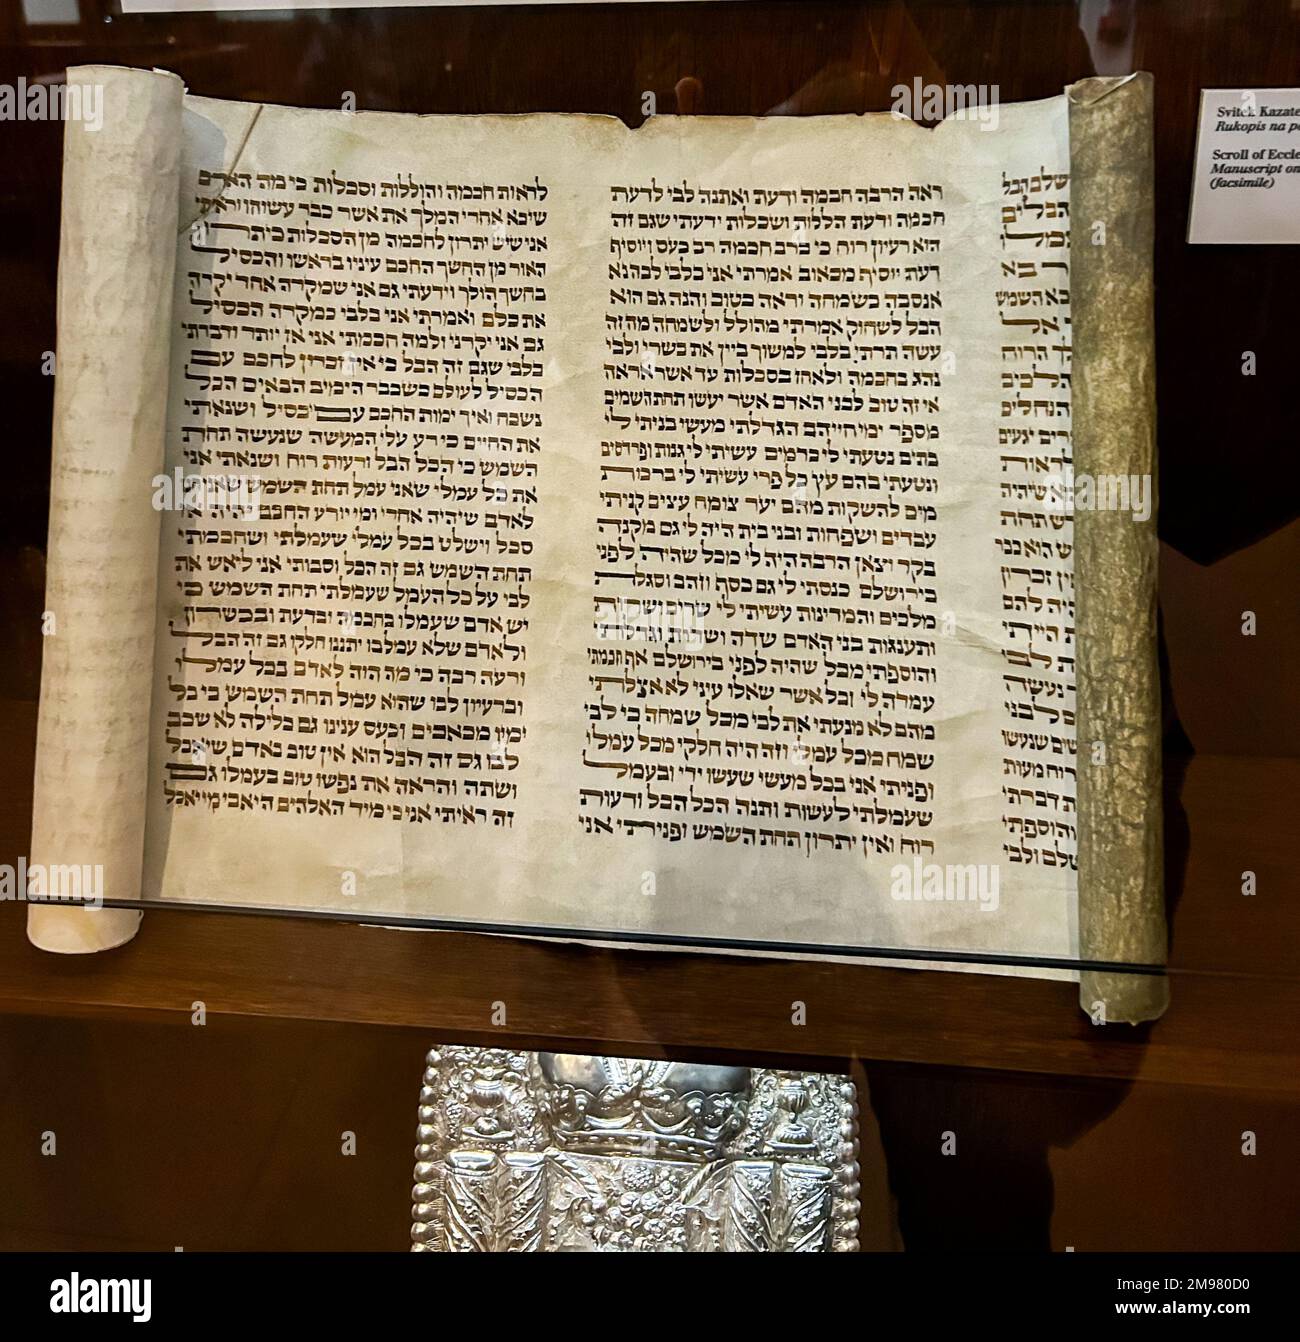 Svitek Kazate
Rukopis na pe
Scroll of Eccle
Manuscript on
(facsimile)
שלם הבל
הבלים
עמלו
בא
בא השמש
אל
לך הרוח
הלכים
הנחלים
רים יגעים
לראות
א שיהיה
ש תחת
ש הוא כבר
אין זכרון
היה להם
ת הייתי
ת לבי
ר נעשה
ם לבני
ים שנעשו
רוח מעות
ת דברתי
והוספתי
שלם ולבי
ראה הרבה חכמה ודעת ואתנה לבי לדעת
חכמה ודעת הללות ושכלות ידעתי שגם זה
הוא רעיון רוח כי ברב חכמה רב כעס ויוסיף
דעת יוסיף מכאוב אמרתי אני בלבי לכה נא
אנסכה בשמחה וראה בטוב והנה גם הוא
הבל לשחוק אמרתי מהולל ולשמחה מה זה
עשה תרתי בלבי למשוך ביין את בשרי ולבי
נהג בחכמה ולאחז בסכלות עד אשר אראה
אי זה טוב לבני האדם אשר יעשו תחת השמים
מספר ימי חייהם הגדלתי מעשי בניתי לי
בתים נטעתי לי כרמים עשיתי לי גנות ופרדסים
ונטעתי בהם עץ כל פרי עשיתי לי ברכות
מים להשקות מהם יער צומח עצים קניתי
עבדים ושפחות ובני בית היה לי גם מקנה
בקר וצאן הרבה היה לי מכל שהיה לפני
בירושלם כנסתי לי גם כסף וזהב וסגלת
מלכים והמדינות עשיתי לי שרים ושרות
ותענגות בני האדם שדה ושדות וגדלתי
והוספתי מכל שהיה לפני בירושלם אף חכמתי
עמדה לי וכל אשר שאלו עיני לא אצלתי
מהם לא מנעתי את לבי מכל שמחה כי לבי
שמח מכל עמלי וזה היה חלקי מכל עמלי
ופניתי אני בכל מעשי שעשו ידי ובעמל
שעמלתי לעשות והנה הכל הבל ורעות
רוח ואין יתרון תחת השמש ופניתי אני
לראות חכמה והוללות וסכלות כי מה האדם
שיבא אחרי המלך את אשר כבר עשוהו וראיתי
אני שיש יתרון לחכמה מן הסכלות כיתרון
האור מן החשך החכם עיניו בראשו והכסיל
בחשך הולך וידעתי גם אני שמקרה אחד יקרה
את כלם ואמרתי אני בלבי כמקרה הכסיל
גם אני יקרני ולמה חכמתי אני אז יותר ודברתי
בלבי שגם זה הבל כי אין זכרון לחכם עם
הכסיל לעולם בשכבר הימים הבאים הכל
נשכח ואיך ימות החכם עם כסיל ושנאתי
את החיים כי רע עלי המעשה שנעשה תחת
השמש כי הכל הבל ורעות רוח ושנאתי אני
את כל עמלי שאני עמל תחת השמש שאניחנו
לאדם שיהיה אחרי ומי יודע החכם יהיה או
סכל וישלט בכל עמלי שעמלתי ושחכמתי
תחת השמש גם זה הבל וסבותי אני ליאש את
לבי על כל העמל שעמלתי תחת השמש כי
יש אדם שעמלו בחכמה ובדעת ובכשרון
ולאדם שלא עמל בו יתננו חלקו גם זה הבל
ורעה רבה כי מה הוה לאדם בכל עמלו
וברעיון לבו שהוא עמל תחת השמש כי כל
ימיו מכאבים וכעס ענינו גם בלילה לא שכב
לבו גם זה הבל הוא אין טוב באדם שיאכל
ושתה והראה את נפשו טוב בעמלו גם
זה ראיתי אני כי מיד האלהים היא כי מי יאכל
alamy
Image ID: 2M980D0
www.alamy.com